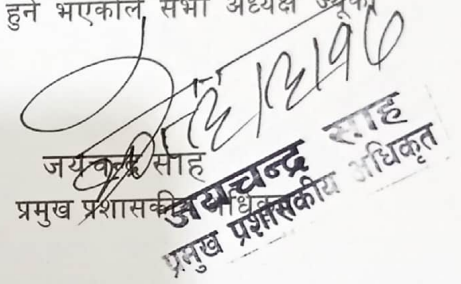 हुने भएकाले सभा अध्यक्ष
जयचन्द्र साह
प्रमुख प्रशासकीय अधिकृत
जयचन्द्र साह
प्रमुख प्रशासकीय अधिकृत